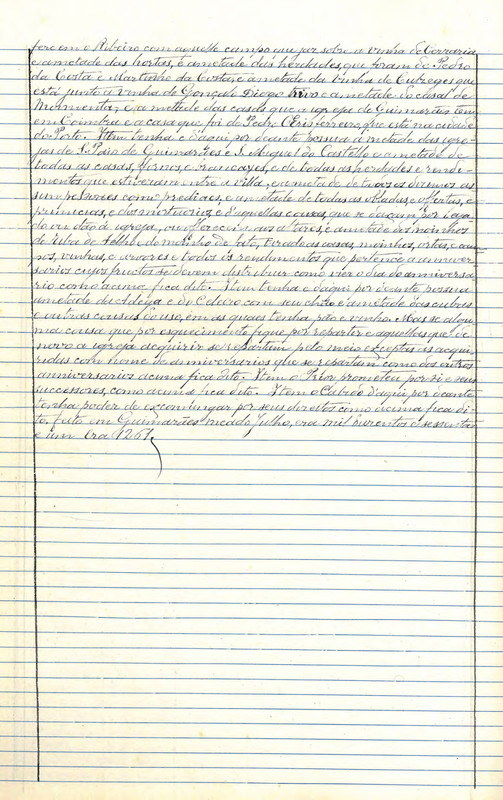 fere em o Ribeiro com aquelle campo que jaz sobre a vinha de Cerraria
e ametade das hortas, e ametade das herdades que foram de Pedro
da Costa e Martinho da Costa, e ametade da vinha de que
está junto á vinha de Gonçalo Diogo e ametade do casal de
e a metade das casas que a igreja de Guimarães tem
em Coimbra e a casa que foi de Pedro que está na cidade
do Porto. Item tenha e daqui por deante possua a metade das igre-
jas de S. Paio de Guimarães e S. Miguel do Castello e ametade de
todas as casas, fornos, e e de todas as herdades e rendi-
mentos que estiverem entre a Villa, e ametade de todos os dizimos as-
sim pessoaes como prediaes, e ametade de todas as obladas e offertas, e
primicias, e dos mortuorios e d'aquellas cousas que se
do em dão á igreja, ou offerecim aos altares, e ametade dos moinhos
de Riba de Selho e do moinho de tirado as casas, moinhos, ortas, e cam-
pos, vinhas, e arvores e todos os rendimentos que pertence a anniver-
sarios cujos fructos se devem distribuir como vier o dia do anniversa-
rio como acima fica dito. Item tenha e daqui por deante possua
ametade da Adega e do Celeiro com seu chão e ametade das cubas
e outras cousas do uso, em as quaes tenha pão e vinho. Mas se algu-
ma cousa que por esquecimento fique por repartir e aquellas que de
novo a igreja acquirir se repartam pelo meio exceptas as acqui-
ridas com nome de anniversarios que se repartam como dos outros
anniversarios acima fica dito. Item o Prior prometeu por si e seus
successores, como acima fica dito. Item o Cabido daqui por deante
tenha poder de excomungar por seus direitos como acima fica di-
to. Feito em Guimarães meado Julho, era mil duzentos e sessenta
e um Era 1261.